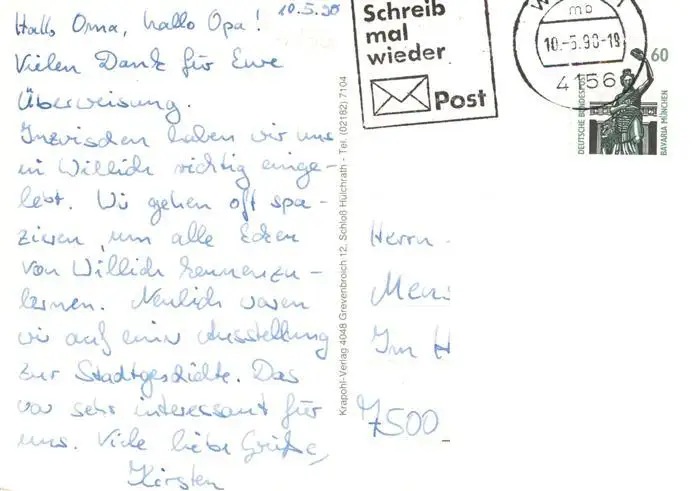 10.5.90
Hallo Oma, hallo Opa!
Vielen Dank für Eure
Überweisung.
Inzwischen haben wir uns
in Willich richtig einge-
lebt. Wir gehen oft spa-
zieren, um alle Ecken
von Willich kennenzu-
lernen. Neulich waren
wir auf einer Ausstellung
zur Stadtgeschichte. Das
war sehr interessant für
uns. Viele liebe Grüße,
Kirsten
Krapohl-Verlag 4048 Grevenbroich 12, Schloß Hülchrath - Tel. (02182) 7104
Schreib
mal
wieder
Post
mb
10.-5.90-18
4156
60
DEUTSCHE BUNDESPOST
BAVARIA MÜNCHEN
Herrn
Im H
7500